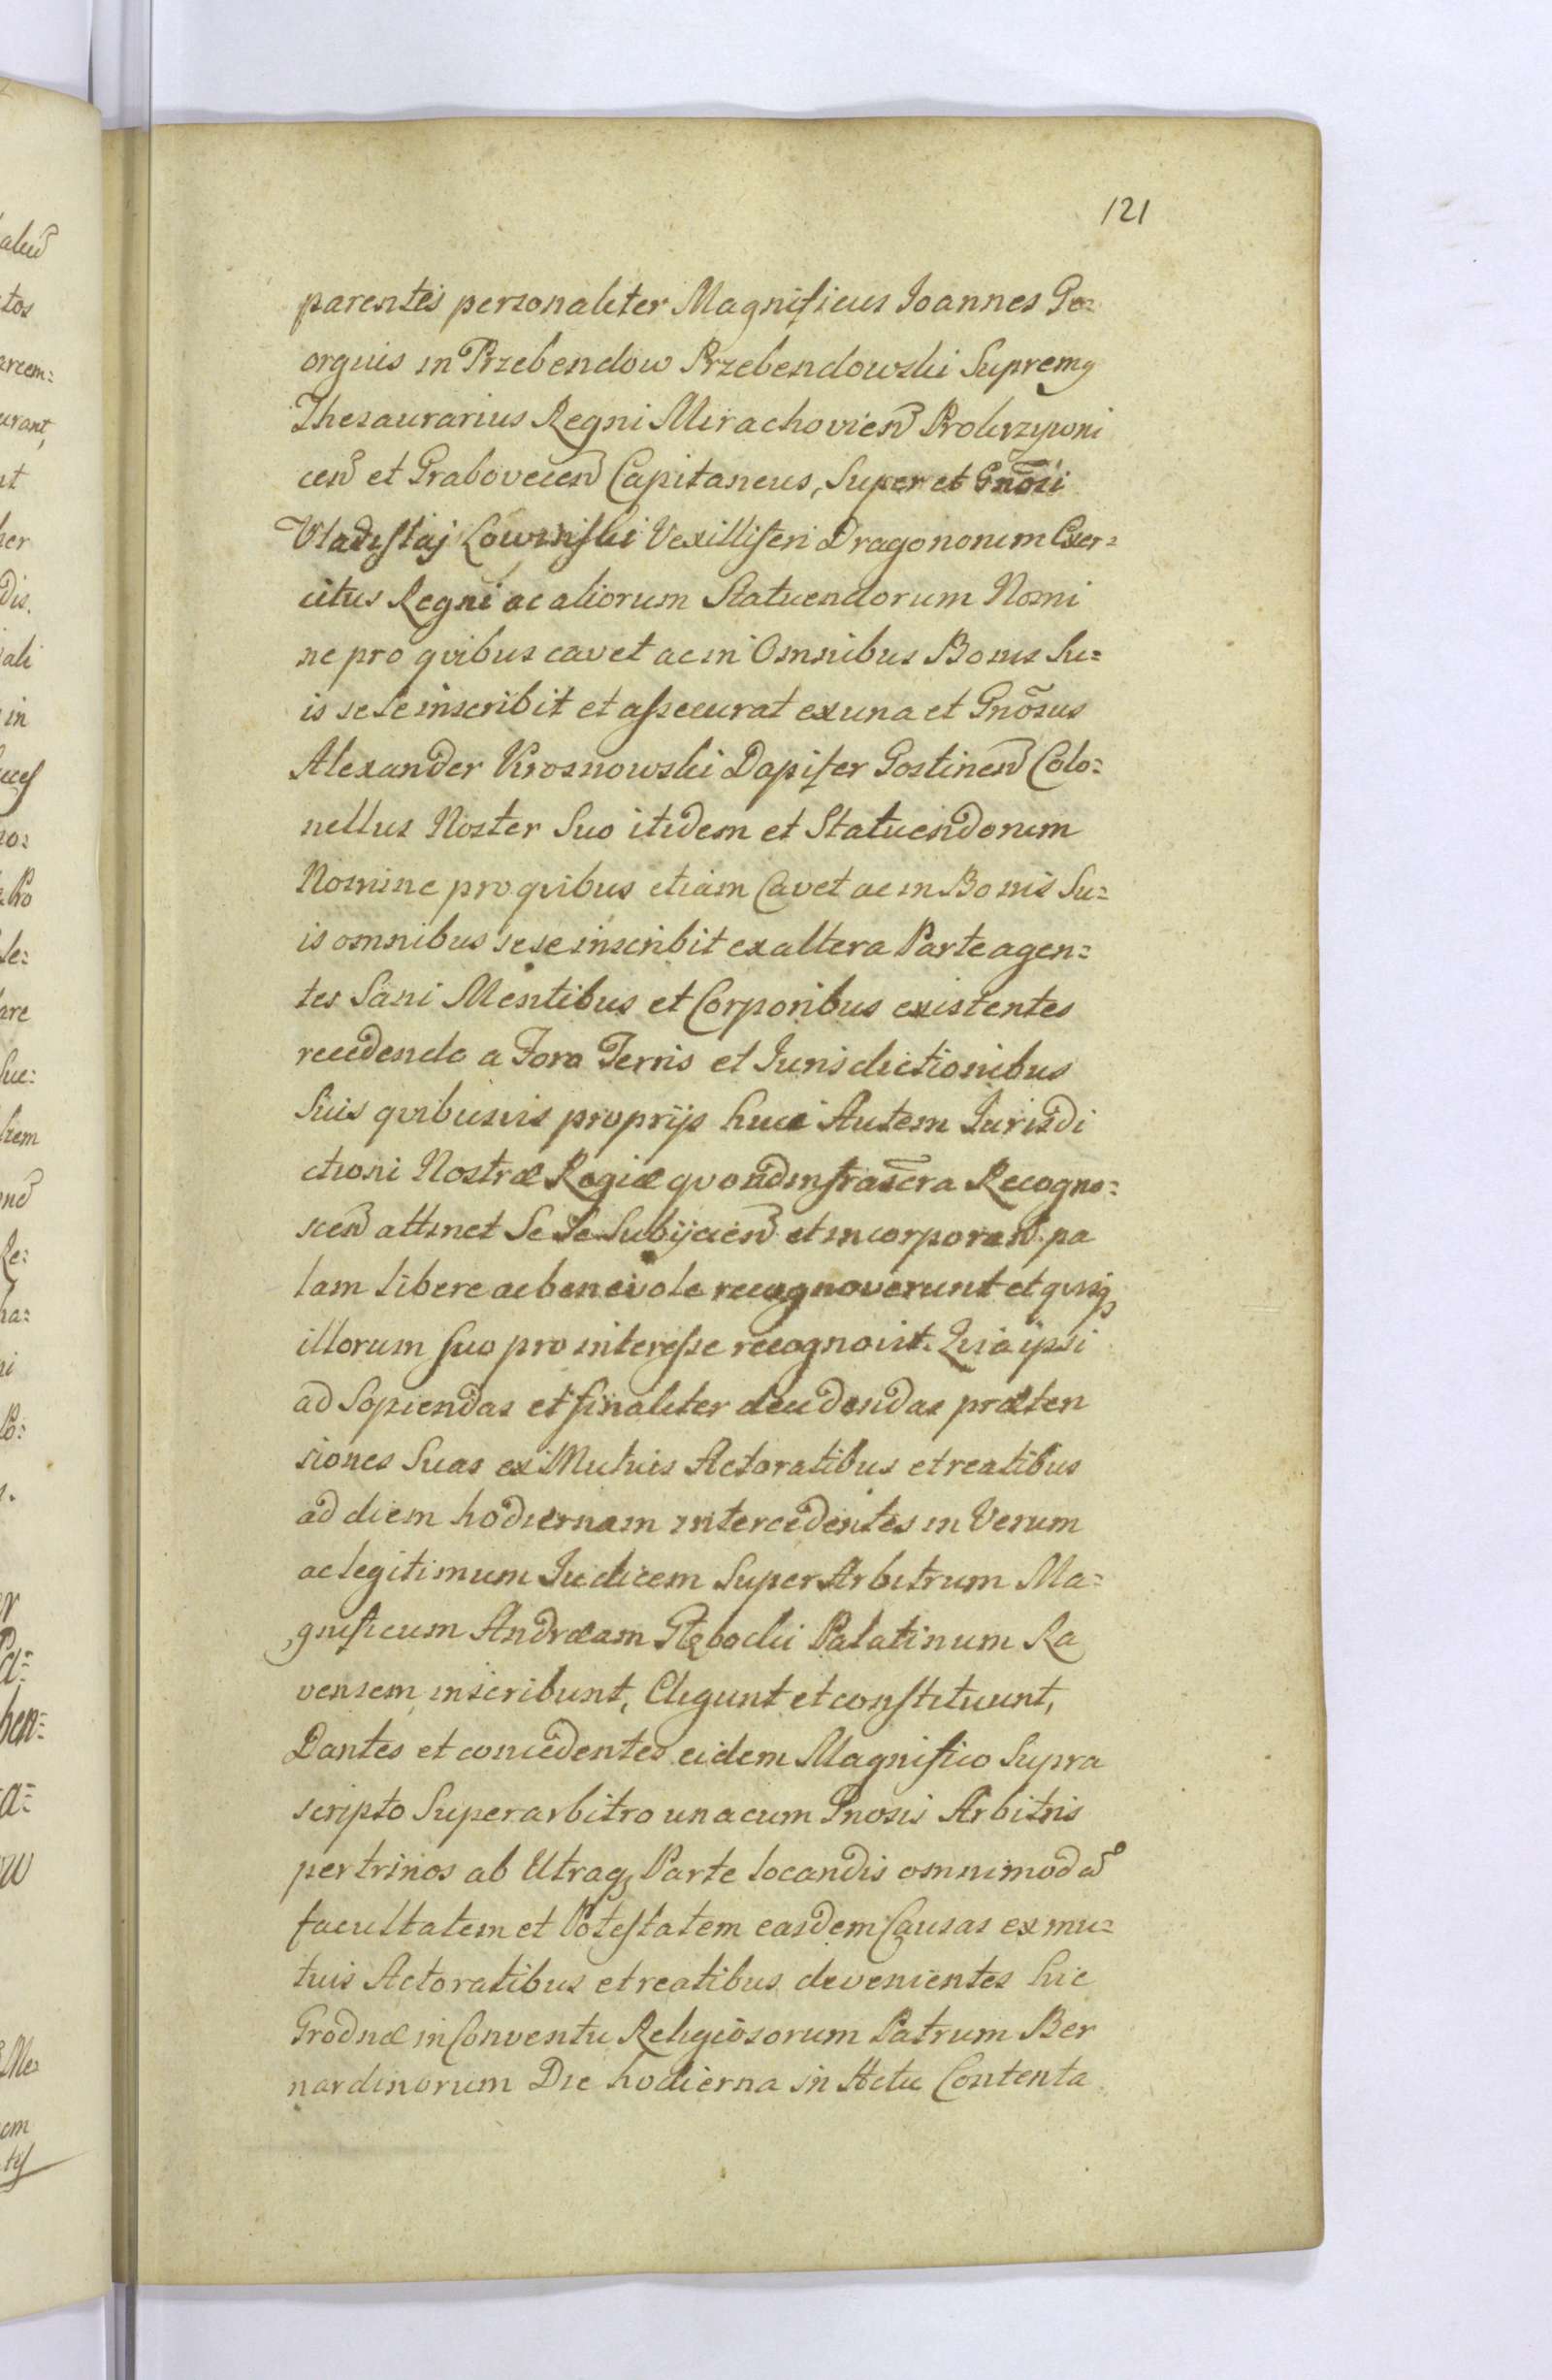 121
parentes personaliter Magnificus Joannes Ge=
orgius in Przebendow Przebendowski Supremq
Thesaurarius Regni Mirachovien Prokrzywni
cen et Grabovecen Capitaneus, Super et Gnosi
Vladislaj Lowinski Vexilliferi Dragonorum Exer=
citus Regni ac aliorum Statuendorum Nomi
ne pro qvibus cavet ac in Omnibus Bonis Su=
is sese inscribit et assecurat ex una et Gnosus
Alexander Krosnowski Dapifer Gostinen Colo=
nellus Noster Suo itidem et Statuendorum
Nomine pro qvibus etiam Cavet ac in Bonis Su=
is omnibus sese inscribit ex altera Parte agen=
tes Sani Mentibus et Corporibus existentes
recedendo a Foro Terris et Jurisdictionibus
Suis qvibusvis proprijs huic Autem Jurisdi
ctioni Nostræ Regiæ qvoad infrascra Recogno=
scen attinet Se Se Subijcien et incorporan pa
lam libere ac benevole recognoverunt et qvisq
illorum suo pro interesse recognovit. Quia ipsi
ad Sopiendas et finaliter decidendas præten
siones Suas ex Mutuis Actoratibus et reatibus
ad diem hodiernam intercedentes in Verum
ac legitimum Judicem Super Arbitrum Ma=
gnificum Andræam Głębocki Palatinum Ra
vensem inscribunt, Eligunt et constituunt,
Dantes et concedentes eidem Magnifico Supra
scripto Superarbitro una cum Gnosis Arbitris
per trinos ab Utraq Parte locandis omnimoda
facultatem et Potestatem easdem Causas ex mu=
tuis Actoratibus et reatibus devenientes hic
Grodnæ in Conventu Religiosorum Patrum Ber
nardinorum Die hodierna in Actu Contenta